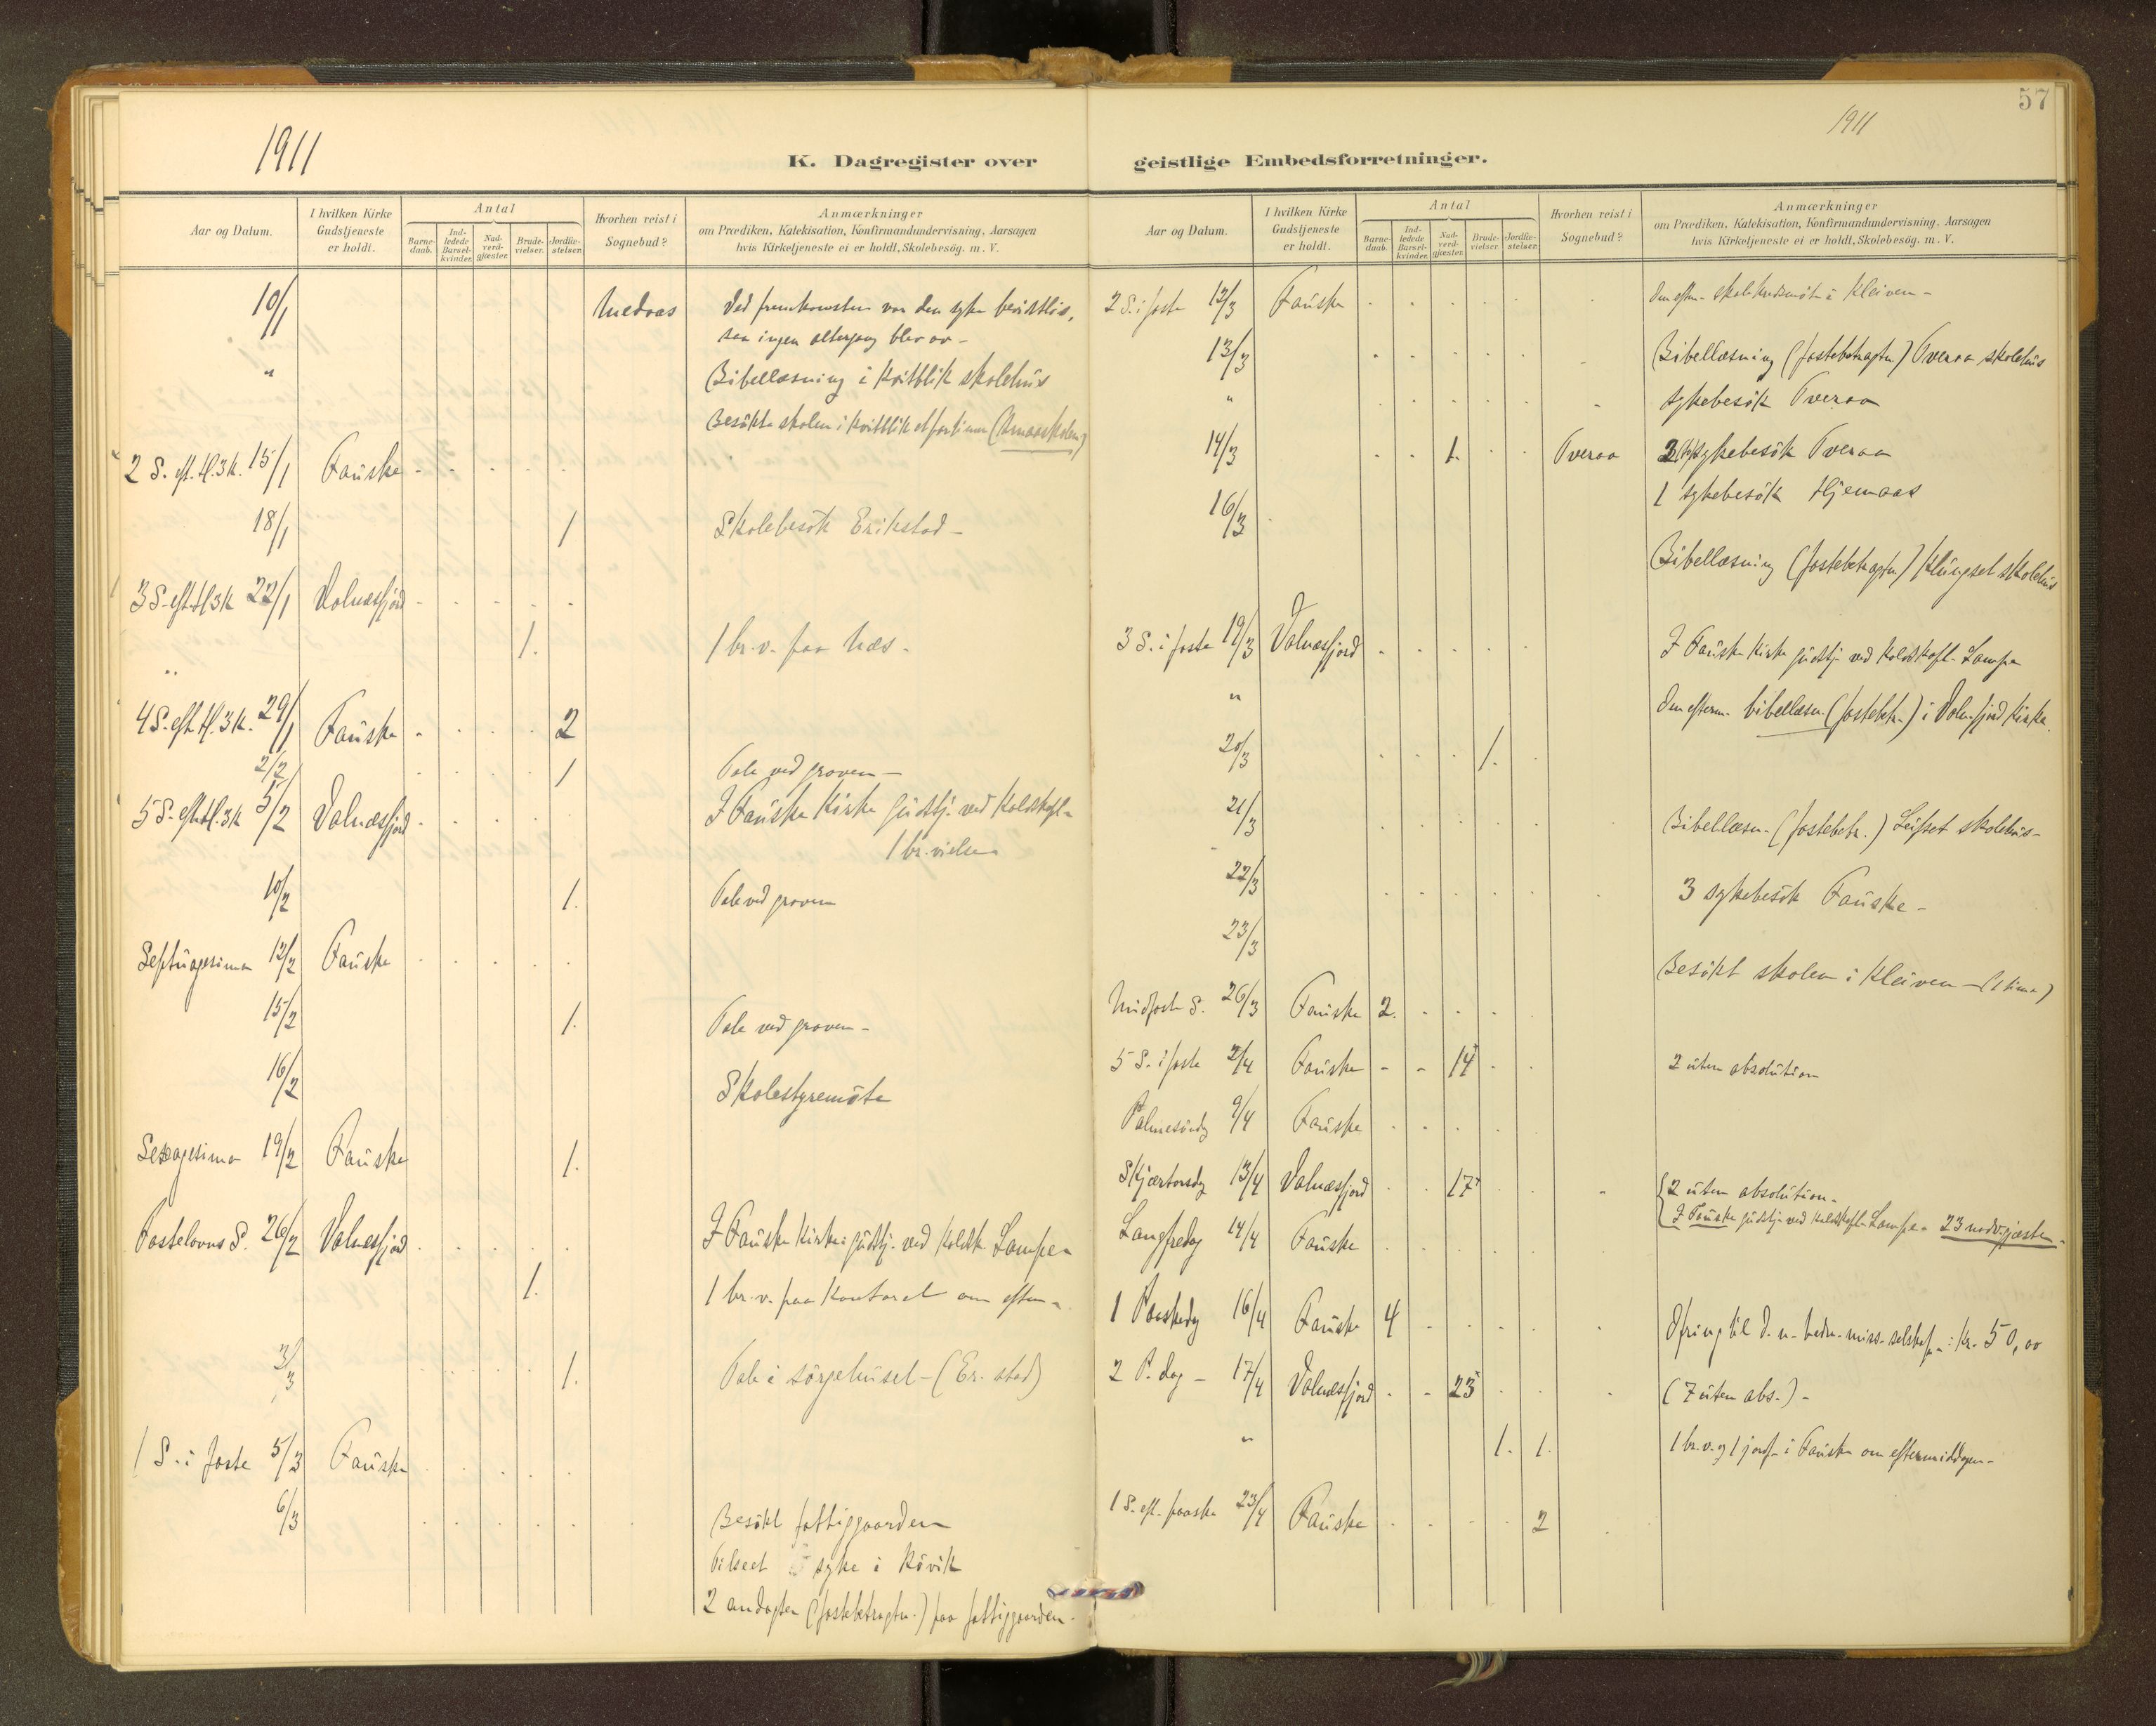 1911
K. Dagregister over
Aar og Datum.
I hvilken Kirke Gudstjeneste er holdt.
Antal
Barne-daab.
Ind-ledede Barsel-kvinder.
Nad-verd-gjæster.
Brude-vielser.
Jordfæ-stelser.
Hvorhen reist i Sognebud?
Anmærkninger
om Prædiken, Katekisation, Konfirmandundervisning, Aarsagen
hvis Kirketjeneste ei er holdt, Skolebesøg. m. V.
10/1 Medaas Ved fremkomsten var den syke bevistløs,
saa ingen altergang blev av -
" Bibellæsning i Kvitblik skolehus
Besøkte skolen i Kvitblik et par timer
2 S. eft. H.3K. 15/1 Fauske
18/1 1 Skolebesøk Erikstad -
3 S. eft. H3K 22/1 Valnesfjord
" 1. 1 br. v. paa Næs -
4 S. eft. H.3K. 29/1 Fauske 2
2/2 1 Tale ved graven -
5 S. eft. H.3K 5/2 Valnesfjord I Fauske Kirke gudstj. ved
1 br. vielse
10/2 1. Tale ved graven
Septuagesima 12/2 Fauske
15/2 1. Tale ved graven -
16/2 Skolestyremøte
Sexagesima 19/2 Fauske 1.
Fastelavns S. 26/2 Valnesfjord I Fauske Kirke: gudstj. ved Lampe -
1. 1 br. v. paa Kontoret om efterm -
3/3 1. Tale i sørgehuset - (Er. stad)
1 S. i faste 5/3 Fauske
6/3 Besøkt fattiggaarden
Tilseet syke i Røvik
2 andagter (fastebetragtn.) paa fattiggaarden -
57
1911
geistlige Embedsforretninger.
Aar og Datum.
I hvilken Kirke Gudstjeneste er holdt.
Antal
Barne-daab.
Ind-ledede Barsel-kvinder.
Nad-verd-gjæster.
Brude-vielser.
Jordfæ-stelser.
Hvorhen reist i Sognebud?
Anmærkninger
om Prædiken, Katekisation, Konfirmandundervisning, Aarsagen
hvis Kirketjeneste ei er holdt, Skolebesøg. m. V.
2 S. i faste 12/3 Fauske Om efterm. skolekredsmøte i Kleiven -
13/3 Bibellæsning (fastebetragtn.) Tveraa skolehus
" sykebesøk Tveraa
14/3 1. Tveraa sykebesøk Tveraa
1 sykebesøk Hjemaas
16/3
Bibellæsning (fastebetragtn.) Klungset skolehus
3 S. i faste 19/3 Valnesfjord I Fauske Kirke gudstj. ved Lampe
" Om efterm. bibellæsn. (fastebetr.) i Valnesfjord Kirke.
20/3 1.
21/3 Bibellæsn. (fastebetr.) Leifset skolehus -
22/3 3 sykebesøk Fauske -
23/3
Besøkt skolen i Kleiven - (1 time)
Midfaste S. 26/3 Fauske 2.
5 S. i faste 2/4 Fauske 14 2 uten absolution
Palmesøndg 9/4 Fauske
Skjærtorsdg 13/4 Valnesfjord 17 2 uten absolution -
I Fauske gudstj. ved Lampe - 23 nadv.gjæster -
Langfredag 14/4 Fauske
1 Paaskedg 16/4 Fauske 4 Ofring til d. n. hedn. miss. selskap -: Kr. 50,00
2 P. dag - 17/4 Valnesfjord 23 (7 uten abs.) -
" 1. 1. 1 br. v. og 1 jordf. i Fauske om eftermiddagen -
1 S. eft. paaske 23/4 Fauske 2